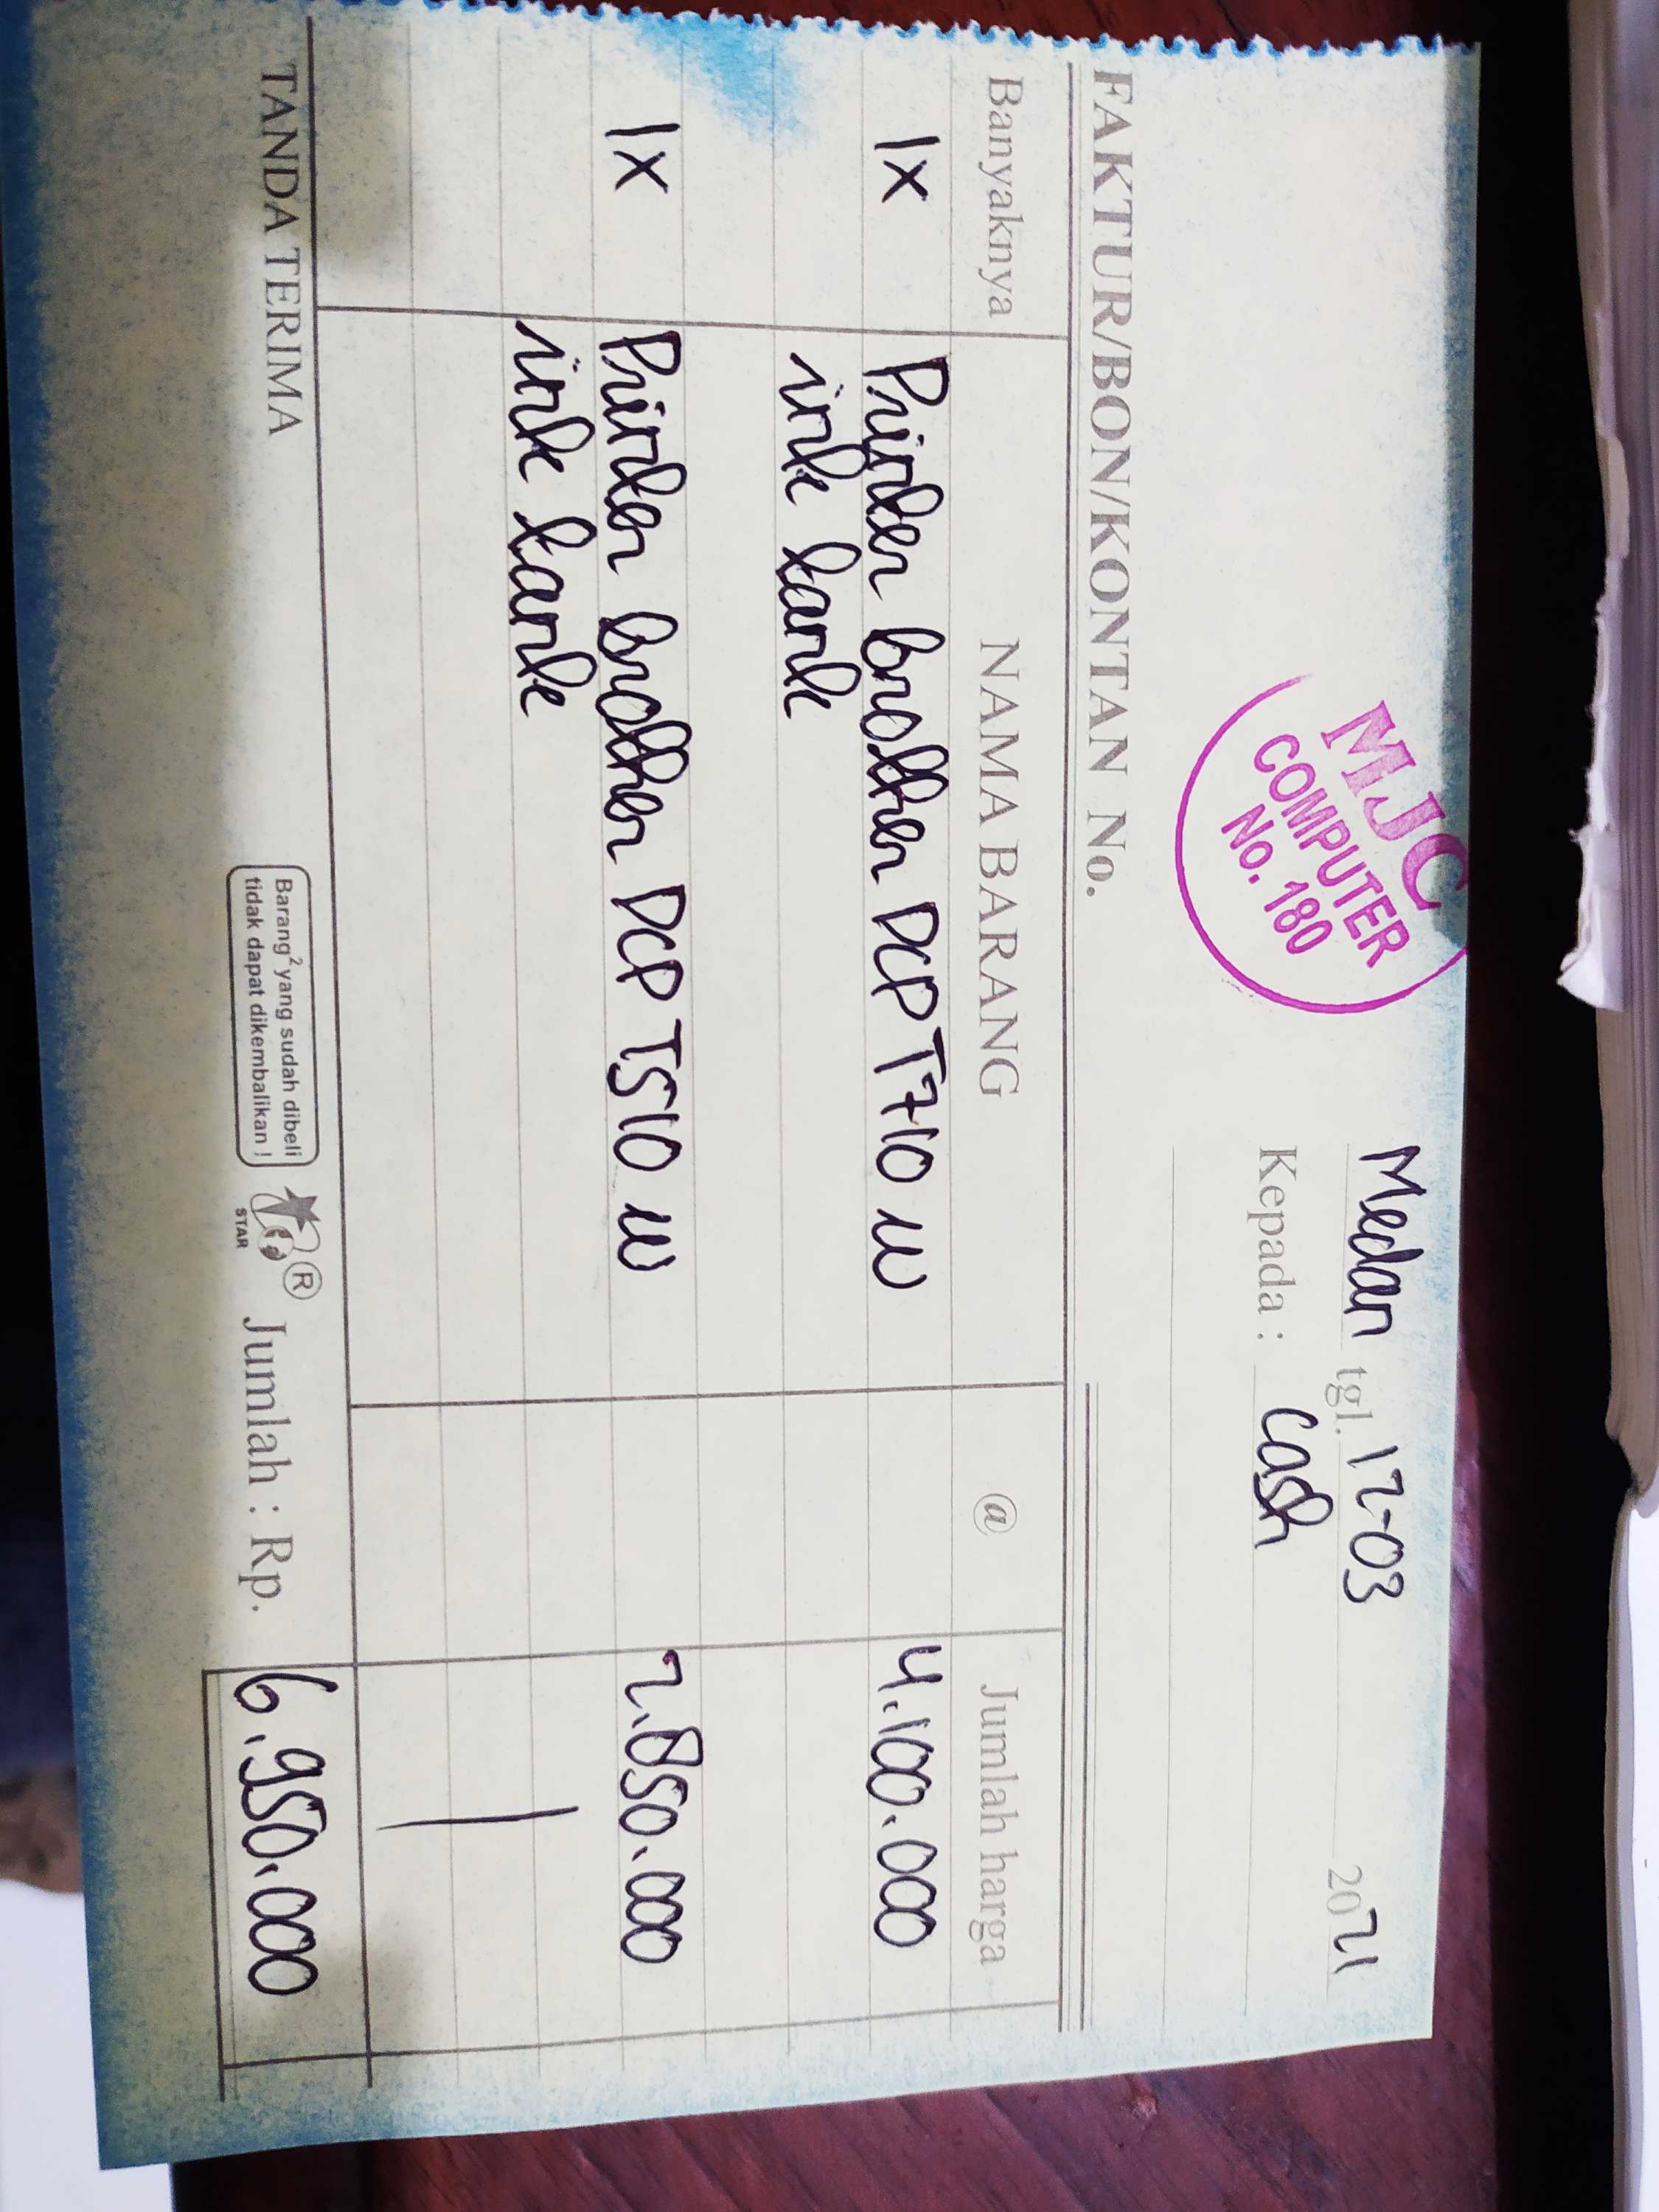 MJC
COMPUTER
No. 180
Medan tgl. 12-03 2021
Kepada : Cash
FAKTUR/BON/KONTAN No.
Banyaknya NAMA BARANG @ Jumlah harga
1x Printer brother DCP T710 W 4.100.000
ink tank
1x Printer brother DCP T510 W 2.850.000
ink tank
TANDA TERIMA
Barang² yang sudah dibeli
tidak dapat dikembalikan !
STAR
®
Jumlah : Rp. 6.950.000